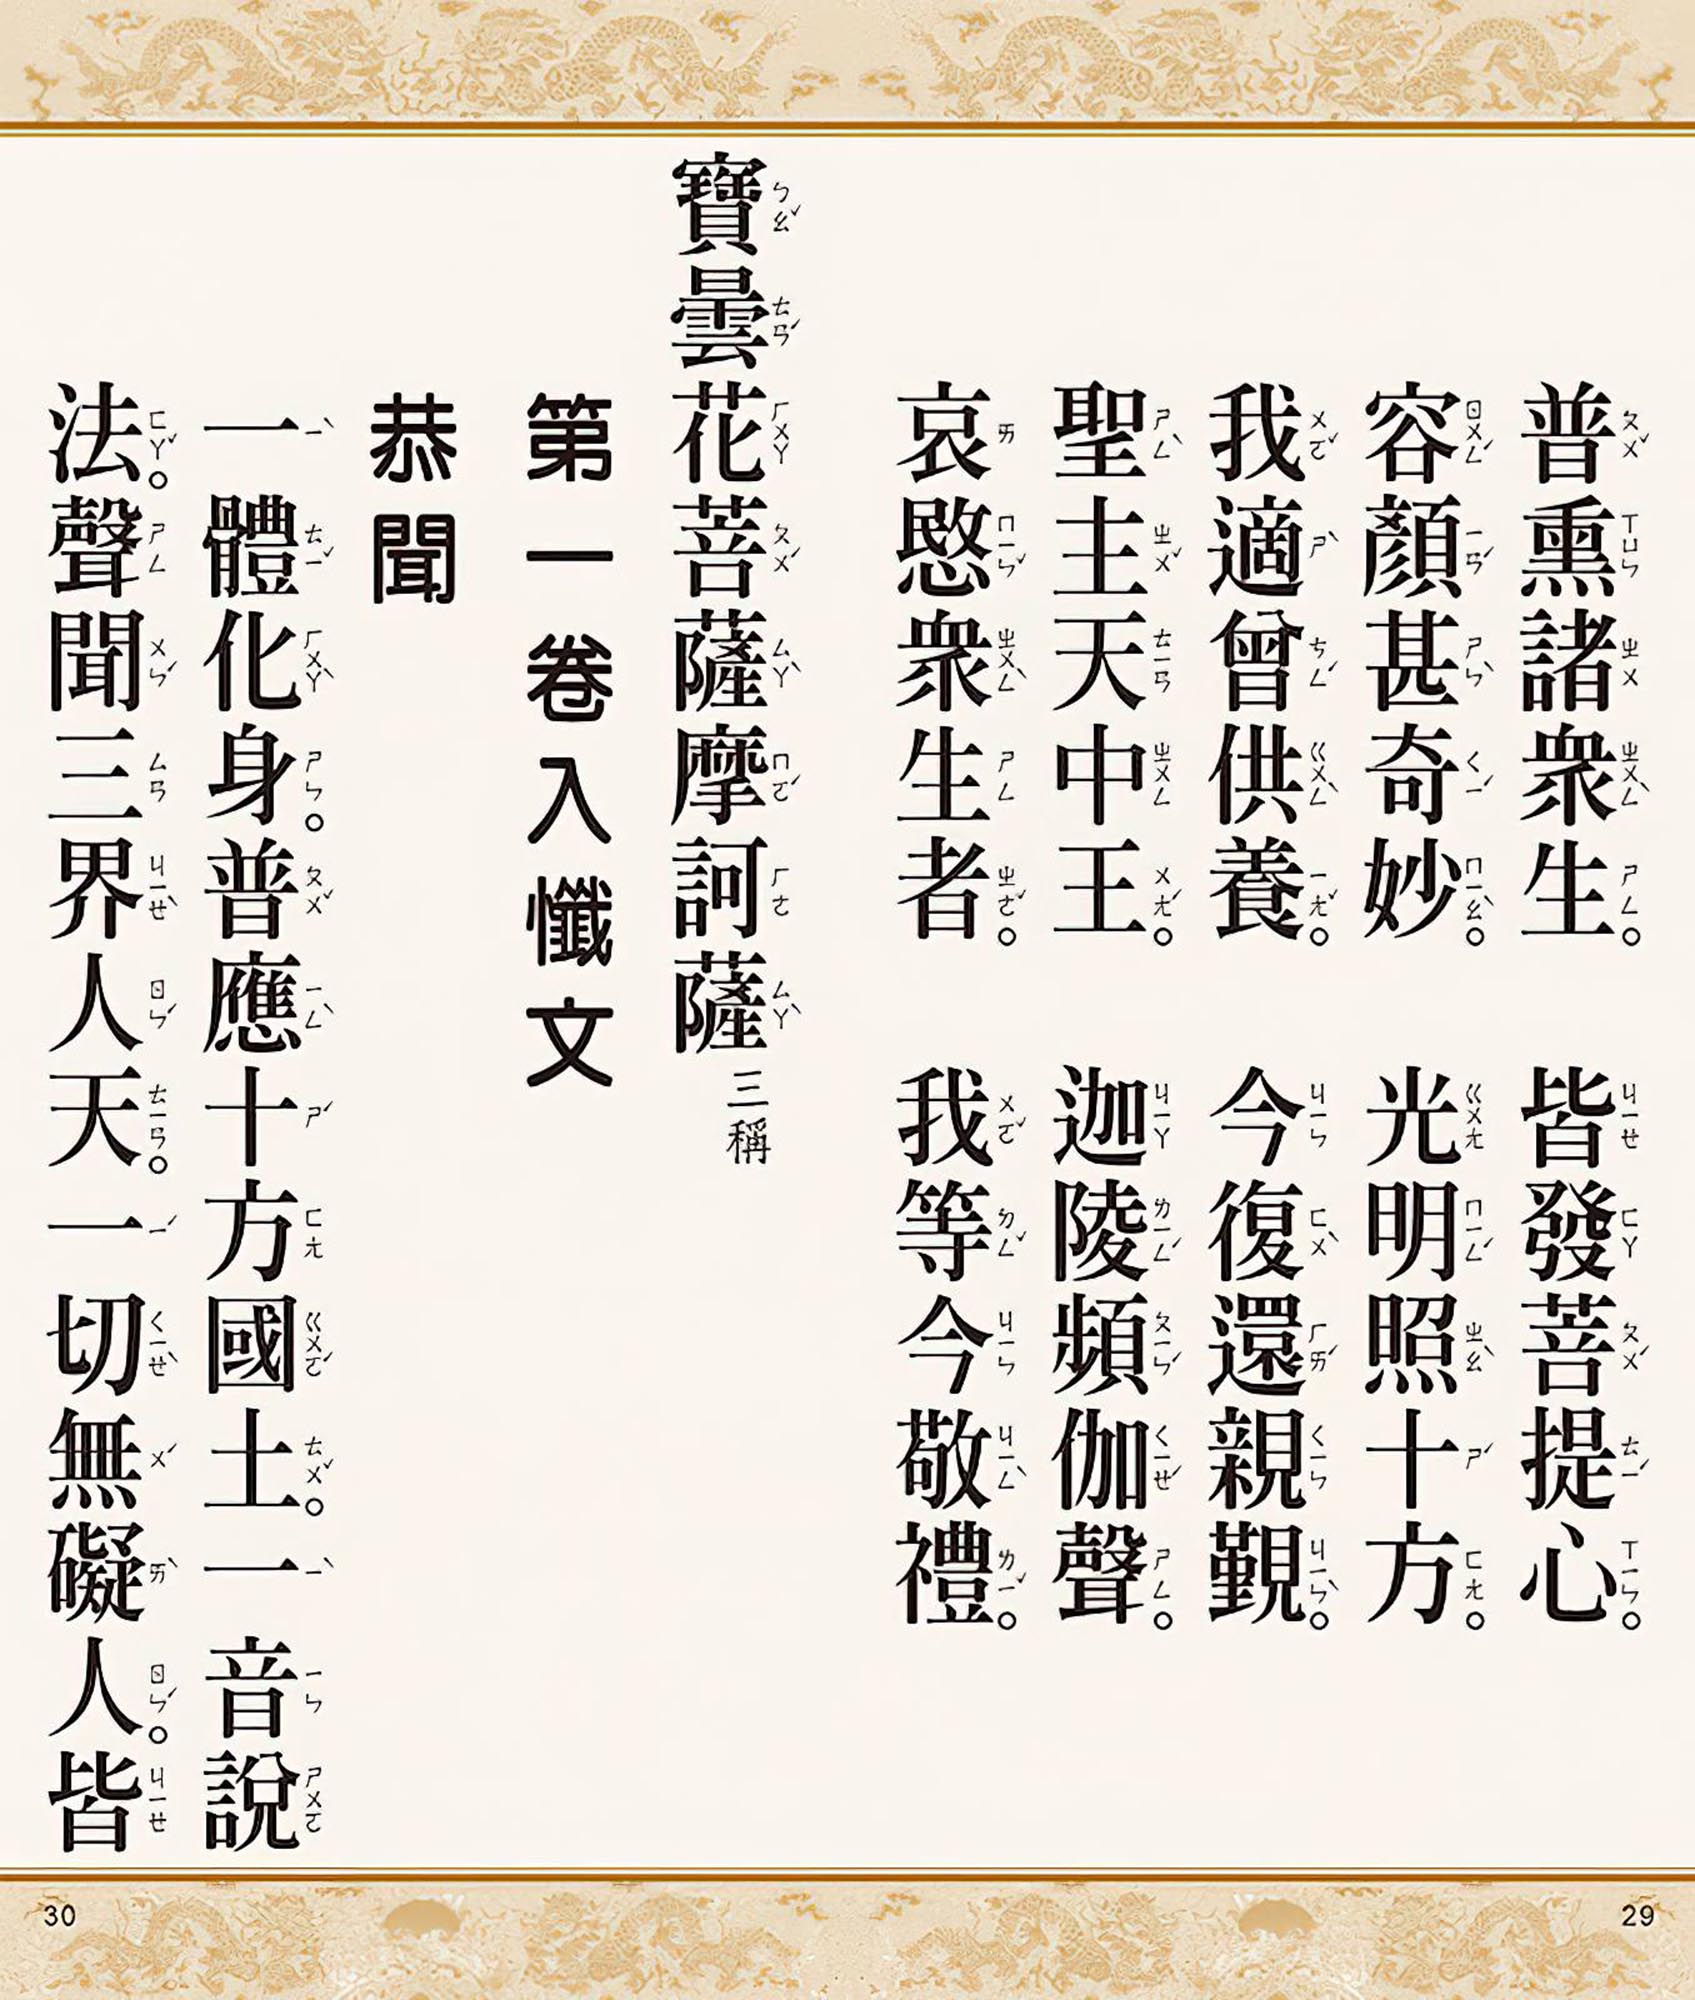 普熏諸衆生。 皆發菩提心。
容顏甚奇妙。 光明照十方。
我適曾供養。 今復還親覲。
聖主天中王。 迦陵頻伽聲。
哀愍衆生者。 我等今敬禮。
寶曇花菩薩摩訶薩 三稱
第一卷入懺文
恭聞
一體化身。普應十方國土。一音說
法。聲聞三界人天。一切無礙人。皆
29
30